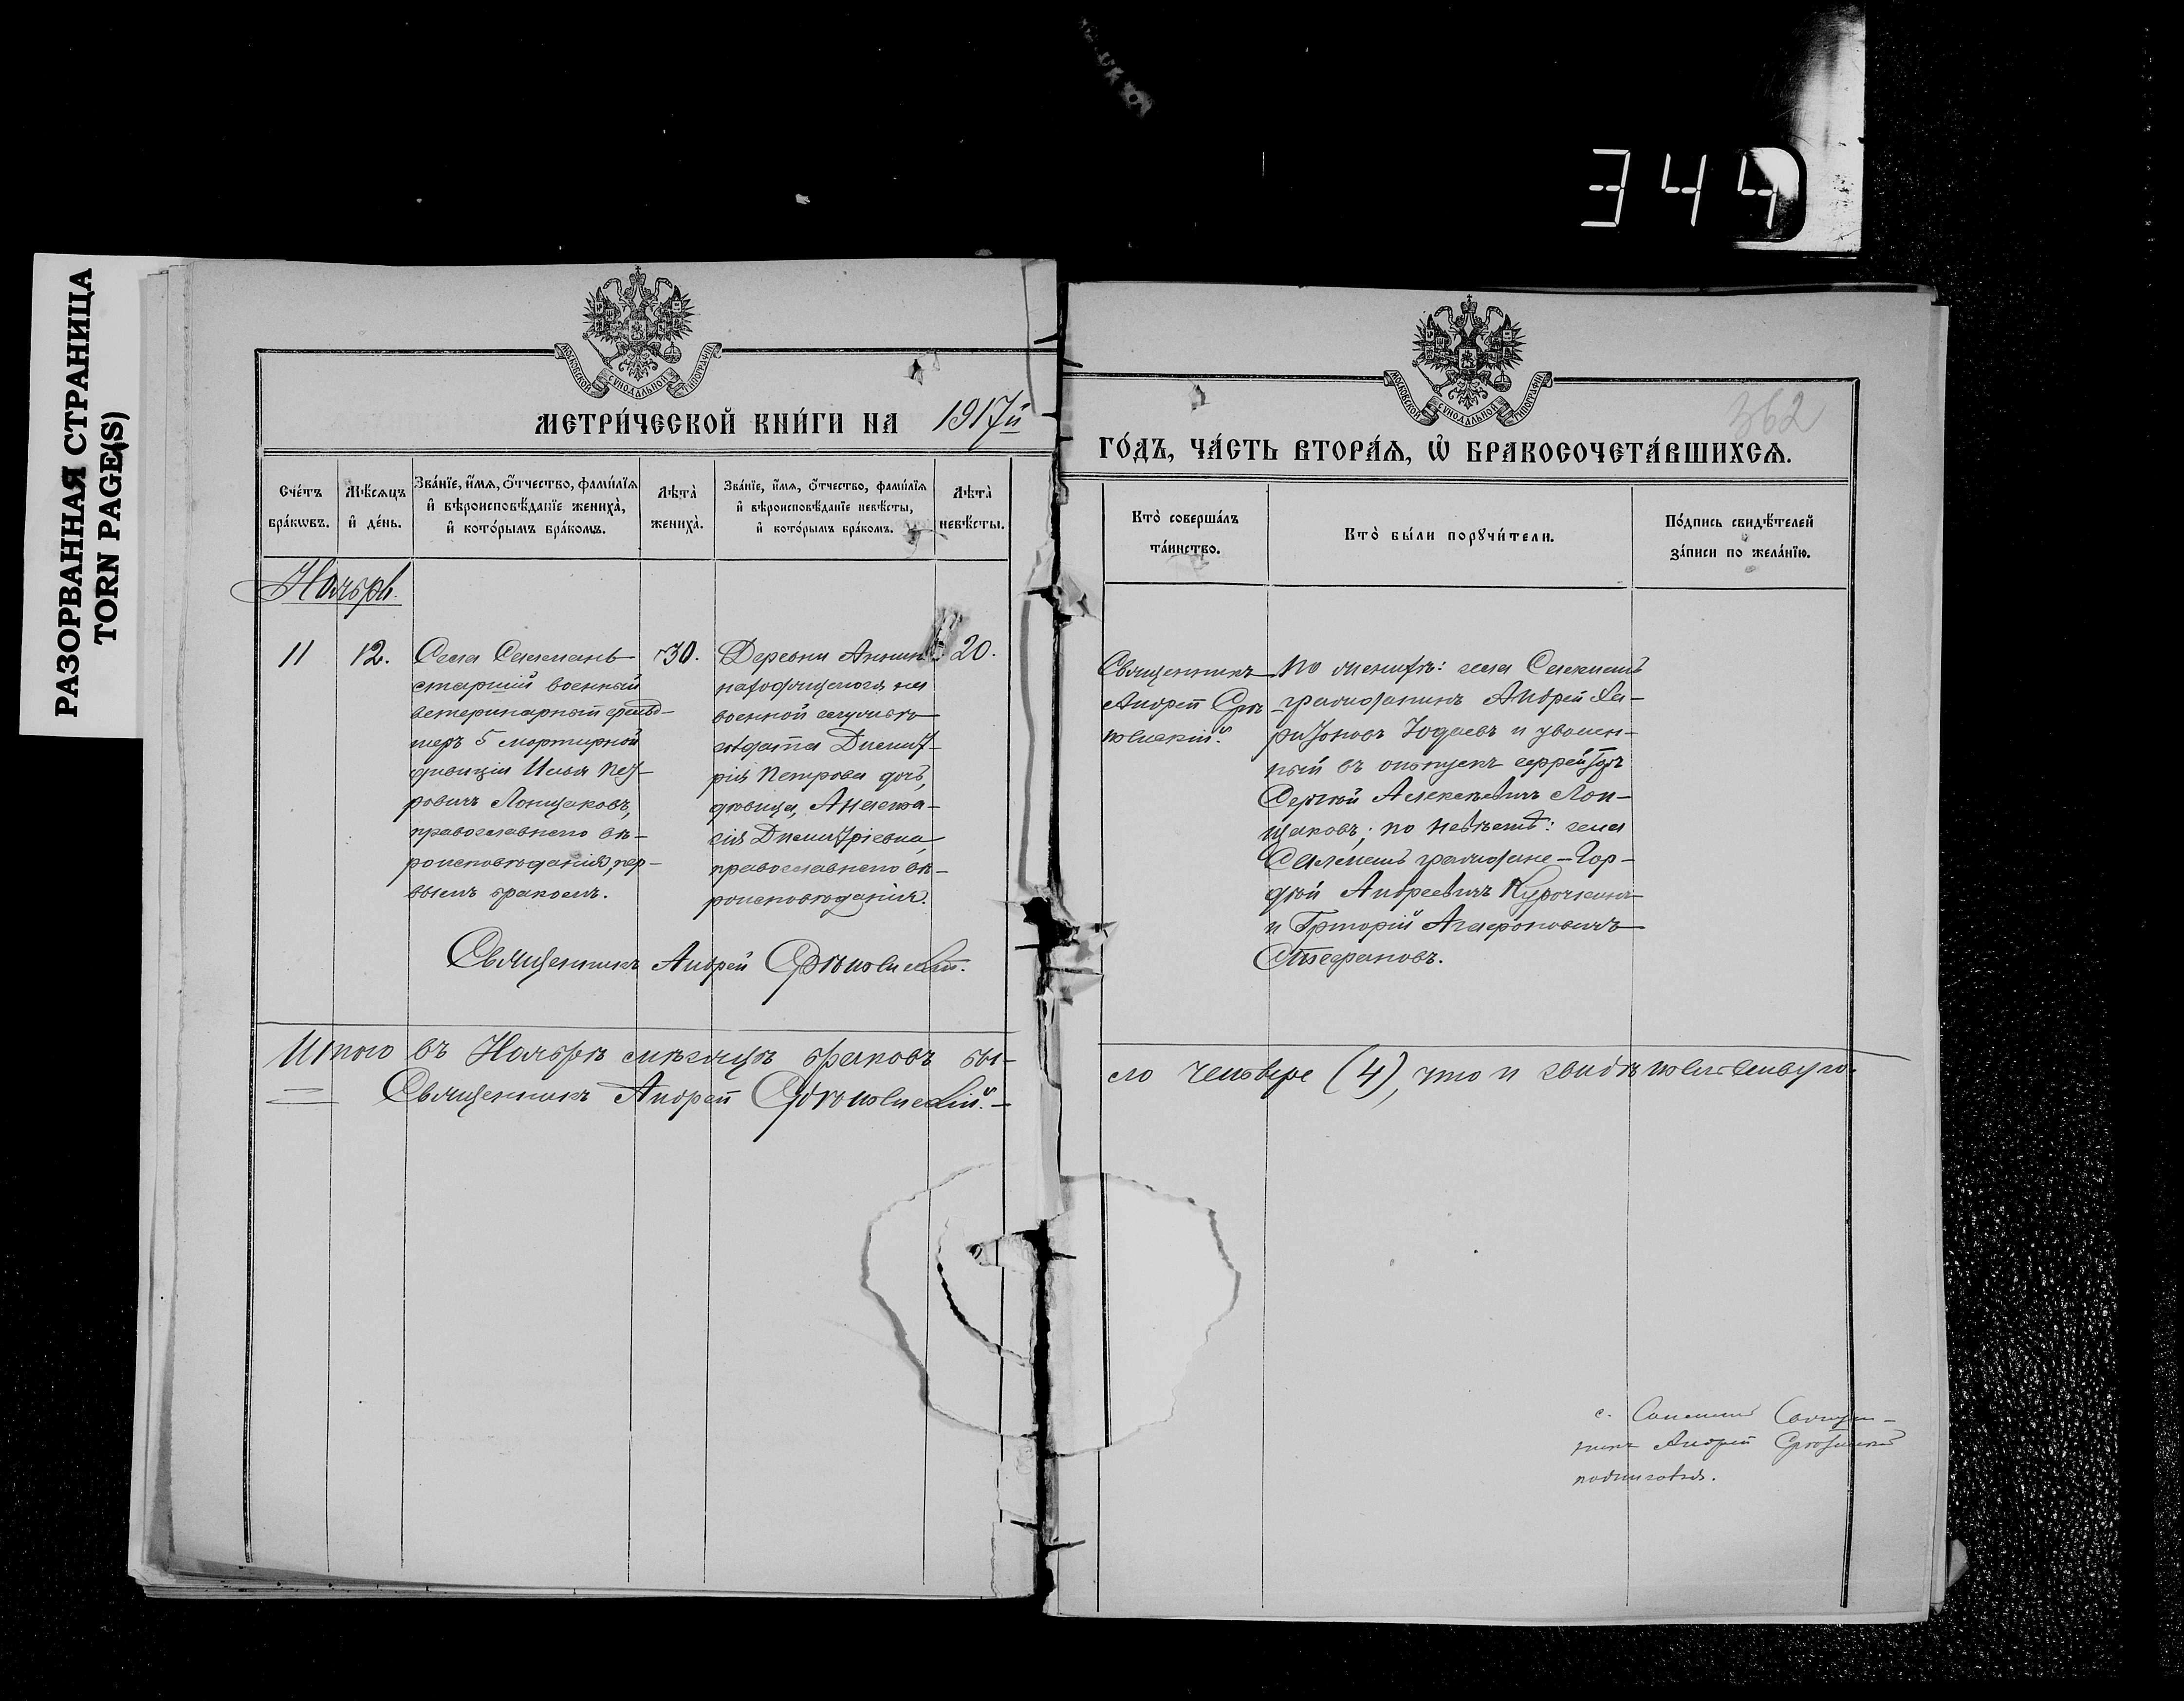 344
РАЗОРВАННАЯ СТРАНИЦА
TORN PAGE(S)
МОСКОВСКОЙ СѴНОДАЛЬНОЙ ТИПОГРАФІИ
МЕТРИ́ЧЕСКОЙ КНИ́ГИ НА 1917й
Сче́тъ бра́кѡвъ.
Мѣ́сѧцъ и҆ де́нь.
Зва́нїе, и҆́мѧ, ѻ҆́тчество, фами́лїѧ
и҆ вѣроисповѣ́данїе жениха̀,
и҆ кото́рымъ бра́комъ.
Лѣта̀ жениха̀.
Зва́нїе, и҆́мѧ, ѻ҆́тчество, фами́лїѧ
и҆ вѣроисповѣ́данїе невѣ́сты,
и҆ кото́рымъ бра́комъ.
Лѣта̀ невѣ́сты.
Ноябрь.
11
12.
Села
старшій военный
ветеринарный фельд-
шеръ 5 мортирной
дивизіи Илья Пет-
ровичъ Лонщаковъ,
православнаго вѣ-
роисповѣданія, пер-
вымъ бракомъ.
30.
Деревни
находящагося на
военной службѣ
солдата Димит-
рія Петрова дочь,
дѣвица, Анаста-
сія Димитріевна
православнаго вѣ-
роисповѣданія.
20.
Священникъ Андрей
Итого въ Ноябрѣ мѣсяцѣ браковъ бы-
Священникъ Андрей
362
МОСКОВСКОЙ СѴНОДАЛЬНОЙ ТИПОГРАФІИ
ГО́ДЪ, ЧА́СТЬ ВТОРА́Ѧ, Ѽ БРАКОСОЧЕТА́ВШИХСѦ.
Кто̀ соверша́лъ
та́инство.
Кто̀ бы́ли порꙋчи́тели.
По́дпись свидѣ́телей
за́писи по жела́нїю.
Священникъ
Андрей
По женихѣ: села
гражданинъ Андрей Ла-
ріоновъ и уволен-
ный въ отпускъ ефрейторъ
Сергѣй Алексѣевичъ Лон-
щаковъ; по невѣстѣ: села
граждане - Гор-
дѣй Андреевичъ Курочкинъ
и Григорій Агафоновичъ
Стефановъ.
ло четыре (4), что и свидѣтельствую.
с. Священ-
никъ Андрей